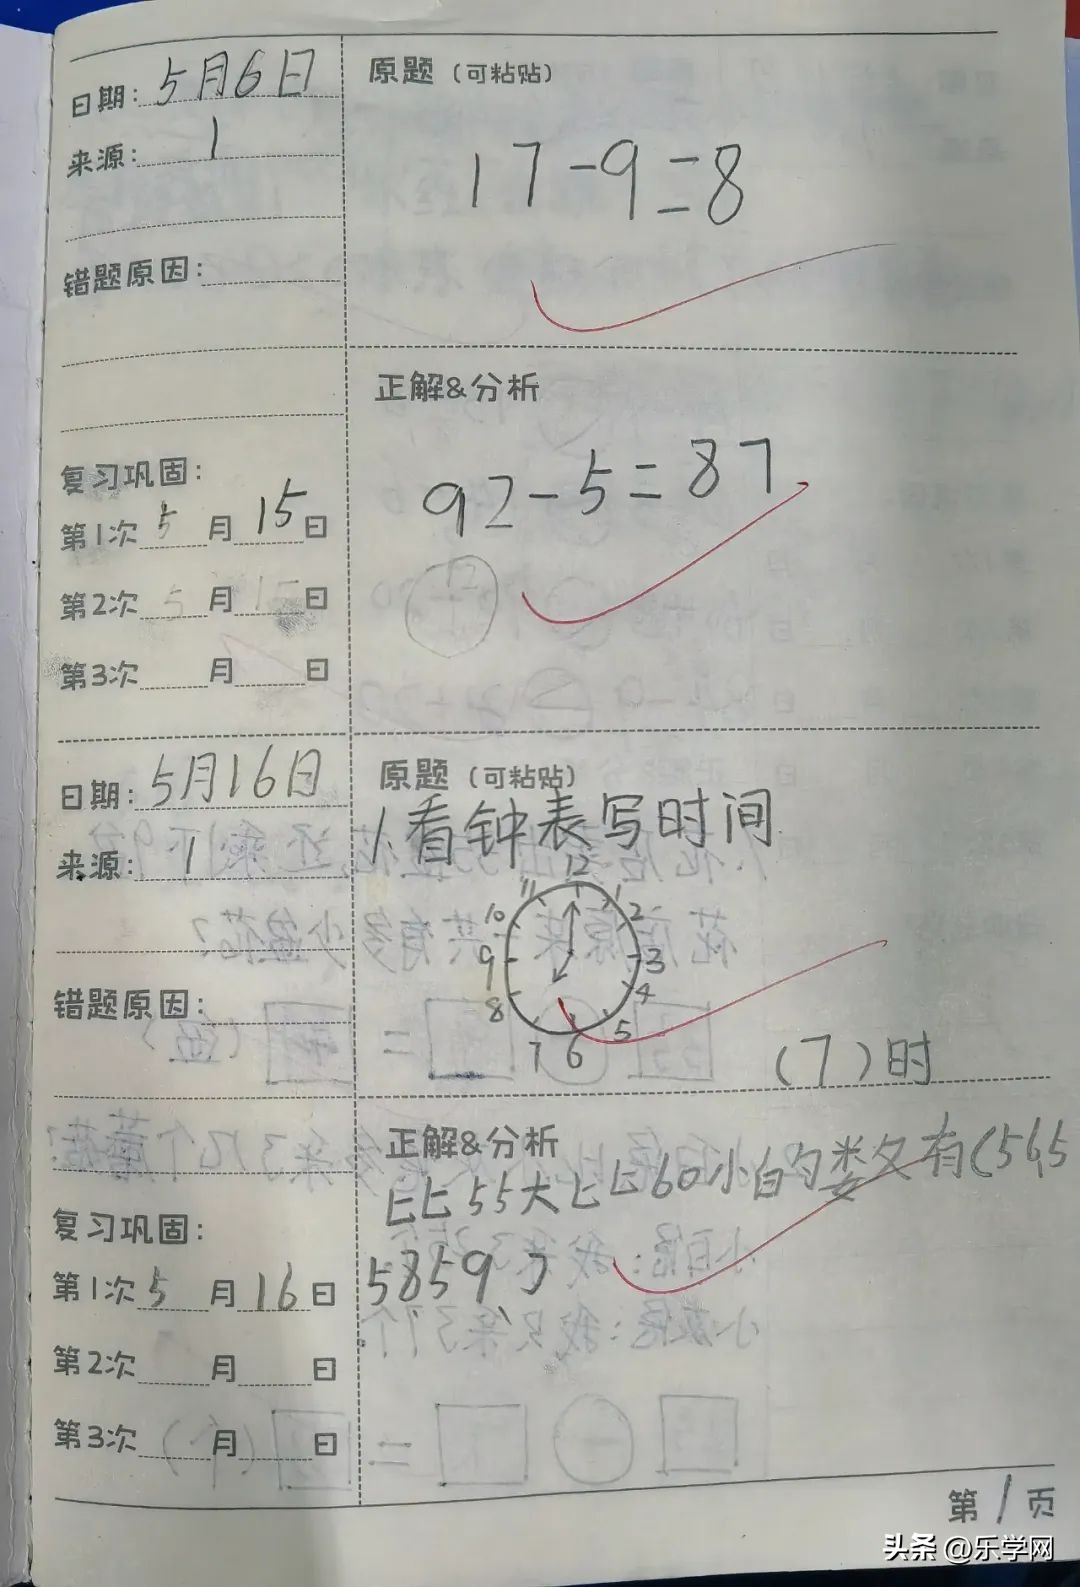 日期: 5月6日
来源: 1
错题原因:
原题 (可粘贴)
17-9=8
正解&分析
92-5=87
复习巩固:
第1次 5 月 15 日
第2次 5 月 日
第3次 月 日
日期: 5月16日
来源: 1
错题原因:
原题 (可粘贴)
1.看钟表写时间
12
11 1
10 2
9 3
8 4
7 6 5
(7)时
正解&分析
比55大比60小白勺娄攵有(56,5
58 59)
复习巩固:
第1次 5 月 16 日
第2次 月 日
第3次 月 日
第 1 页
头条 @乐学网